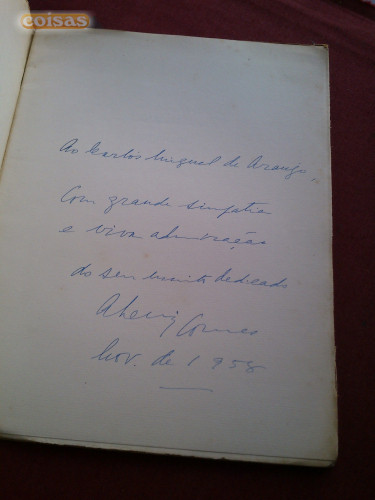 coisas
Ao Carlos Miguel de Araujo,
Com grande simpatia
e viva admiração
do seu muito dedicado
Gomes
Nov. de 1958